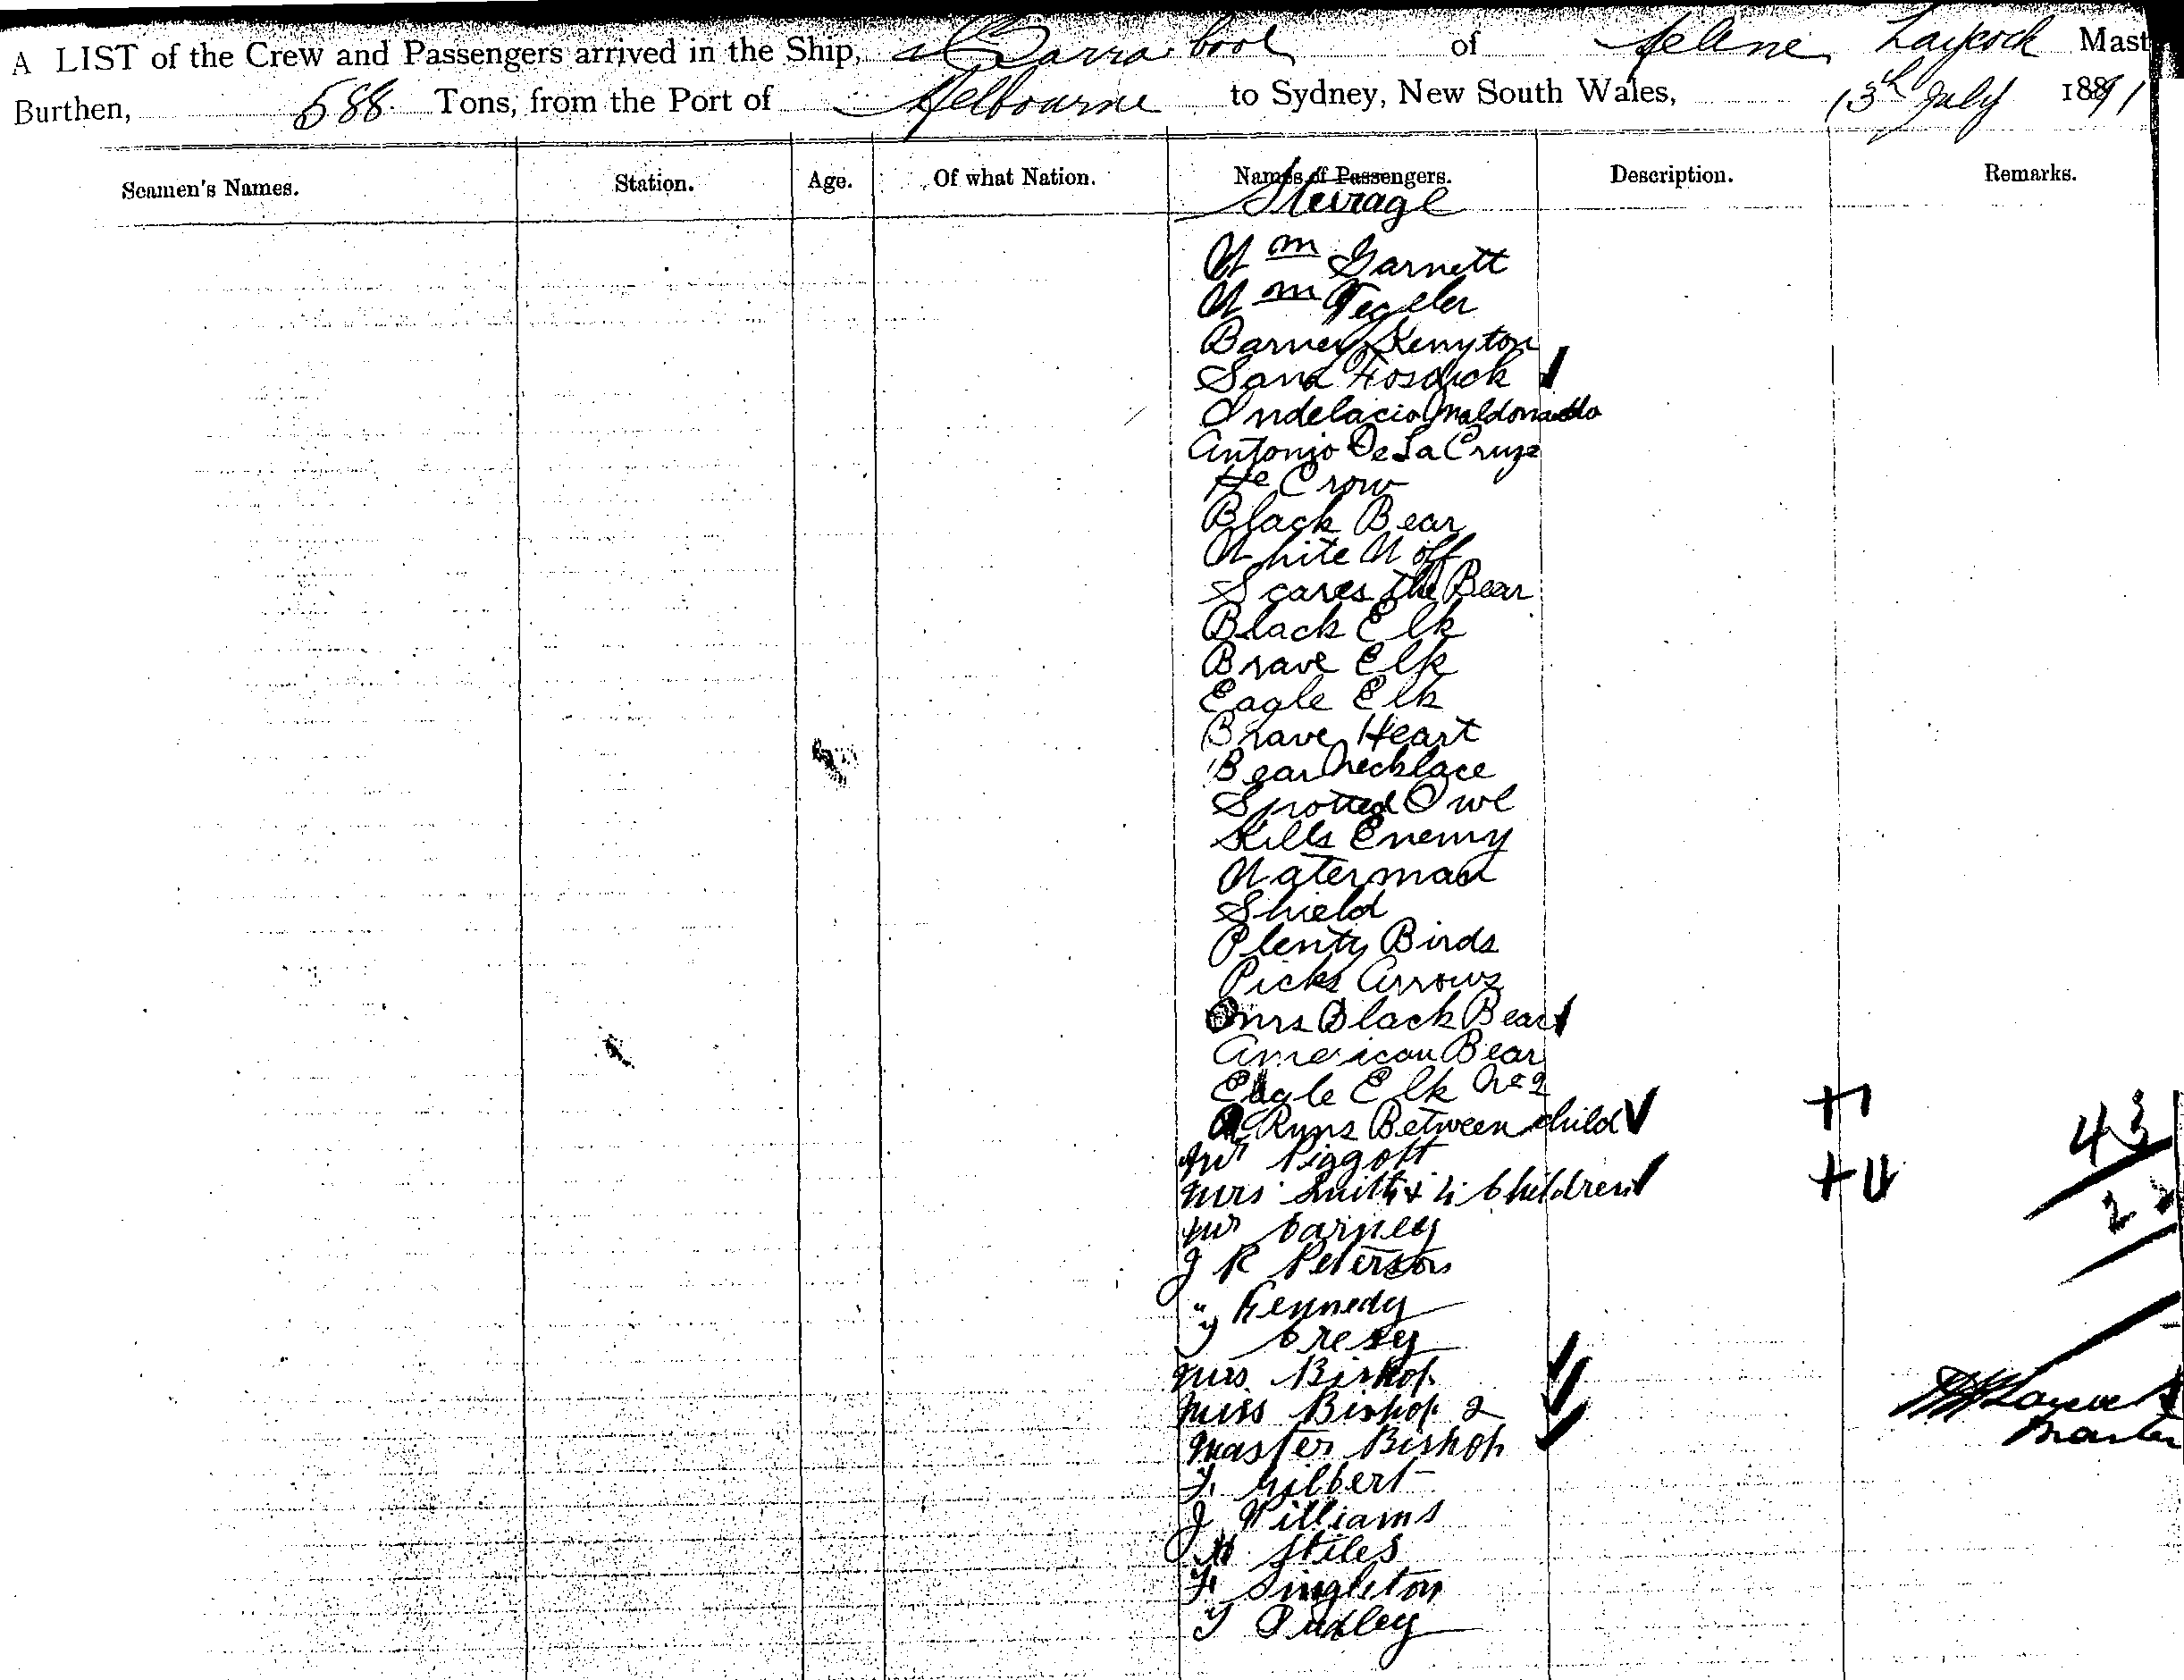 A LIST of the Crew and Passengers arrived in the Ship, Barrabool of Melbne, Laycock Mast
Burthen, 588 Tons, from the Port of Melbourne to Sydney, New South Wales, 13th July 1891
Seamen's Names. Station. Age. Of what Nation. Names of Passengers. Description. Remarks.
Steirage
Wm Garnett
Wm Tegeler
Barney Kenyton
Sana Fosdick
Indelacio Maldonado
Antonio De La Cruze
He Crow
Black Bear
White Wolf
Scares the Bear
Black Elk
Brave Elk
Eagle Elk
Brave Heart
Bear Necklace
Spotted Owl
Kills Enemy
Waterman
Shield
Plenty Birds
Picks Arrows
Mrs Black Bear
American Bear
Eagle Elk No 2
Runs Between child
+1
43
Mr Piggott
Mrs Smith & 4 Children
+4
2
Mr Carney
J R Peterson
" Kennedy
J Cresy
Mrs Bishop
Miss Bishop 2
Master Bishop
Master
F. Gilbert
J Williams
H Stiles
F. Singleton
J Pudley